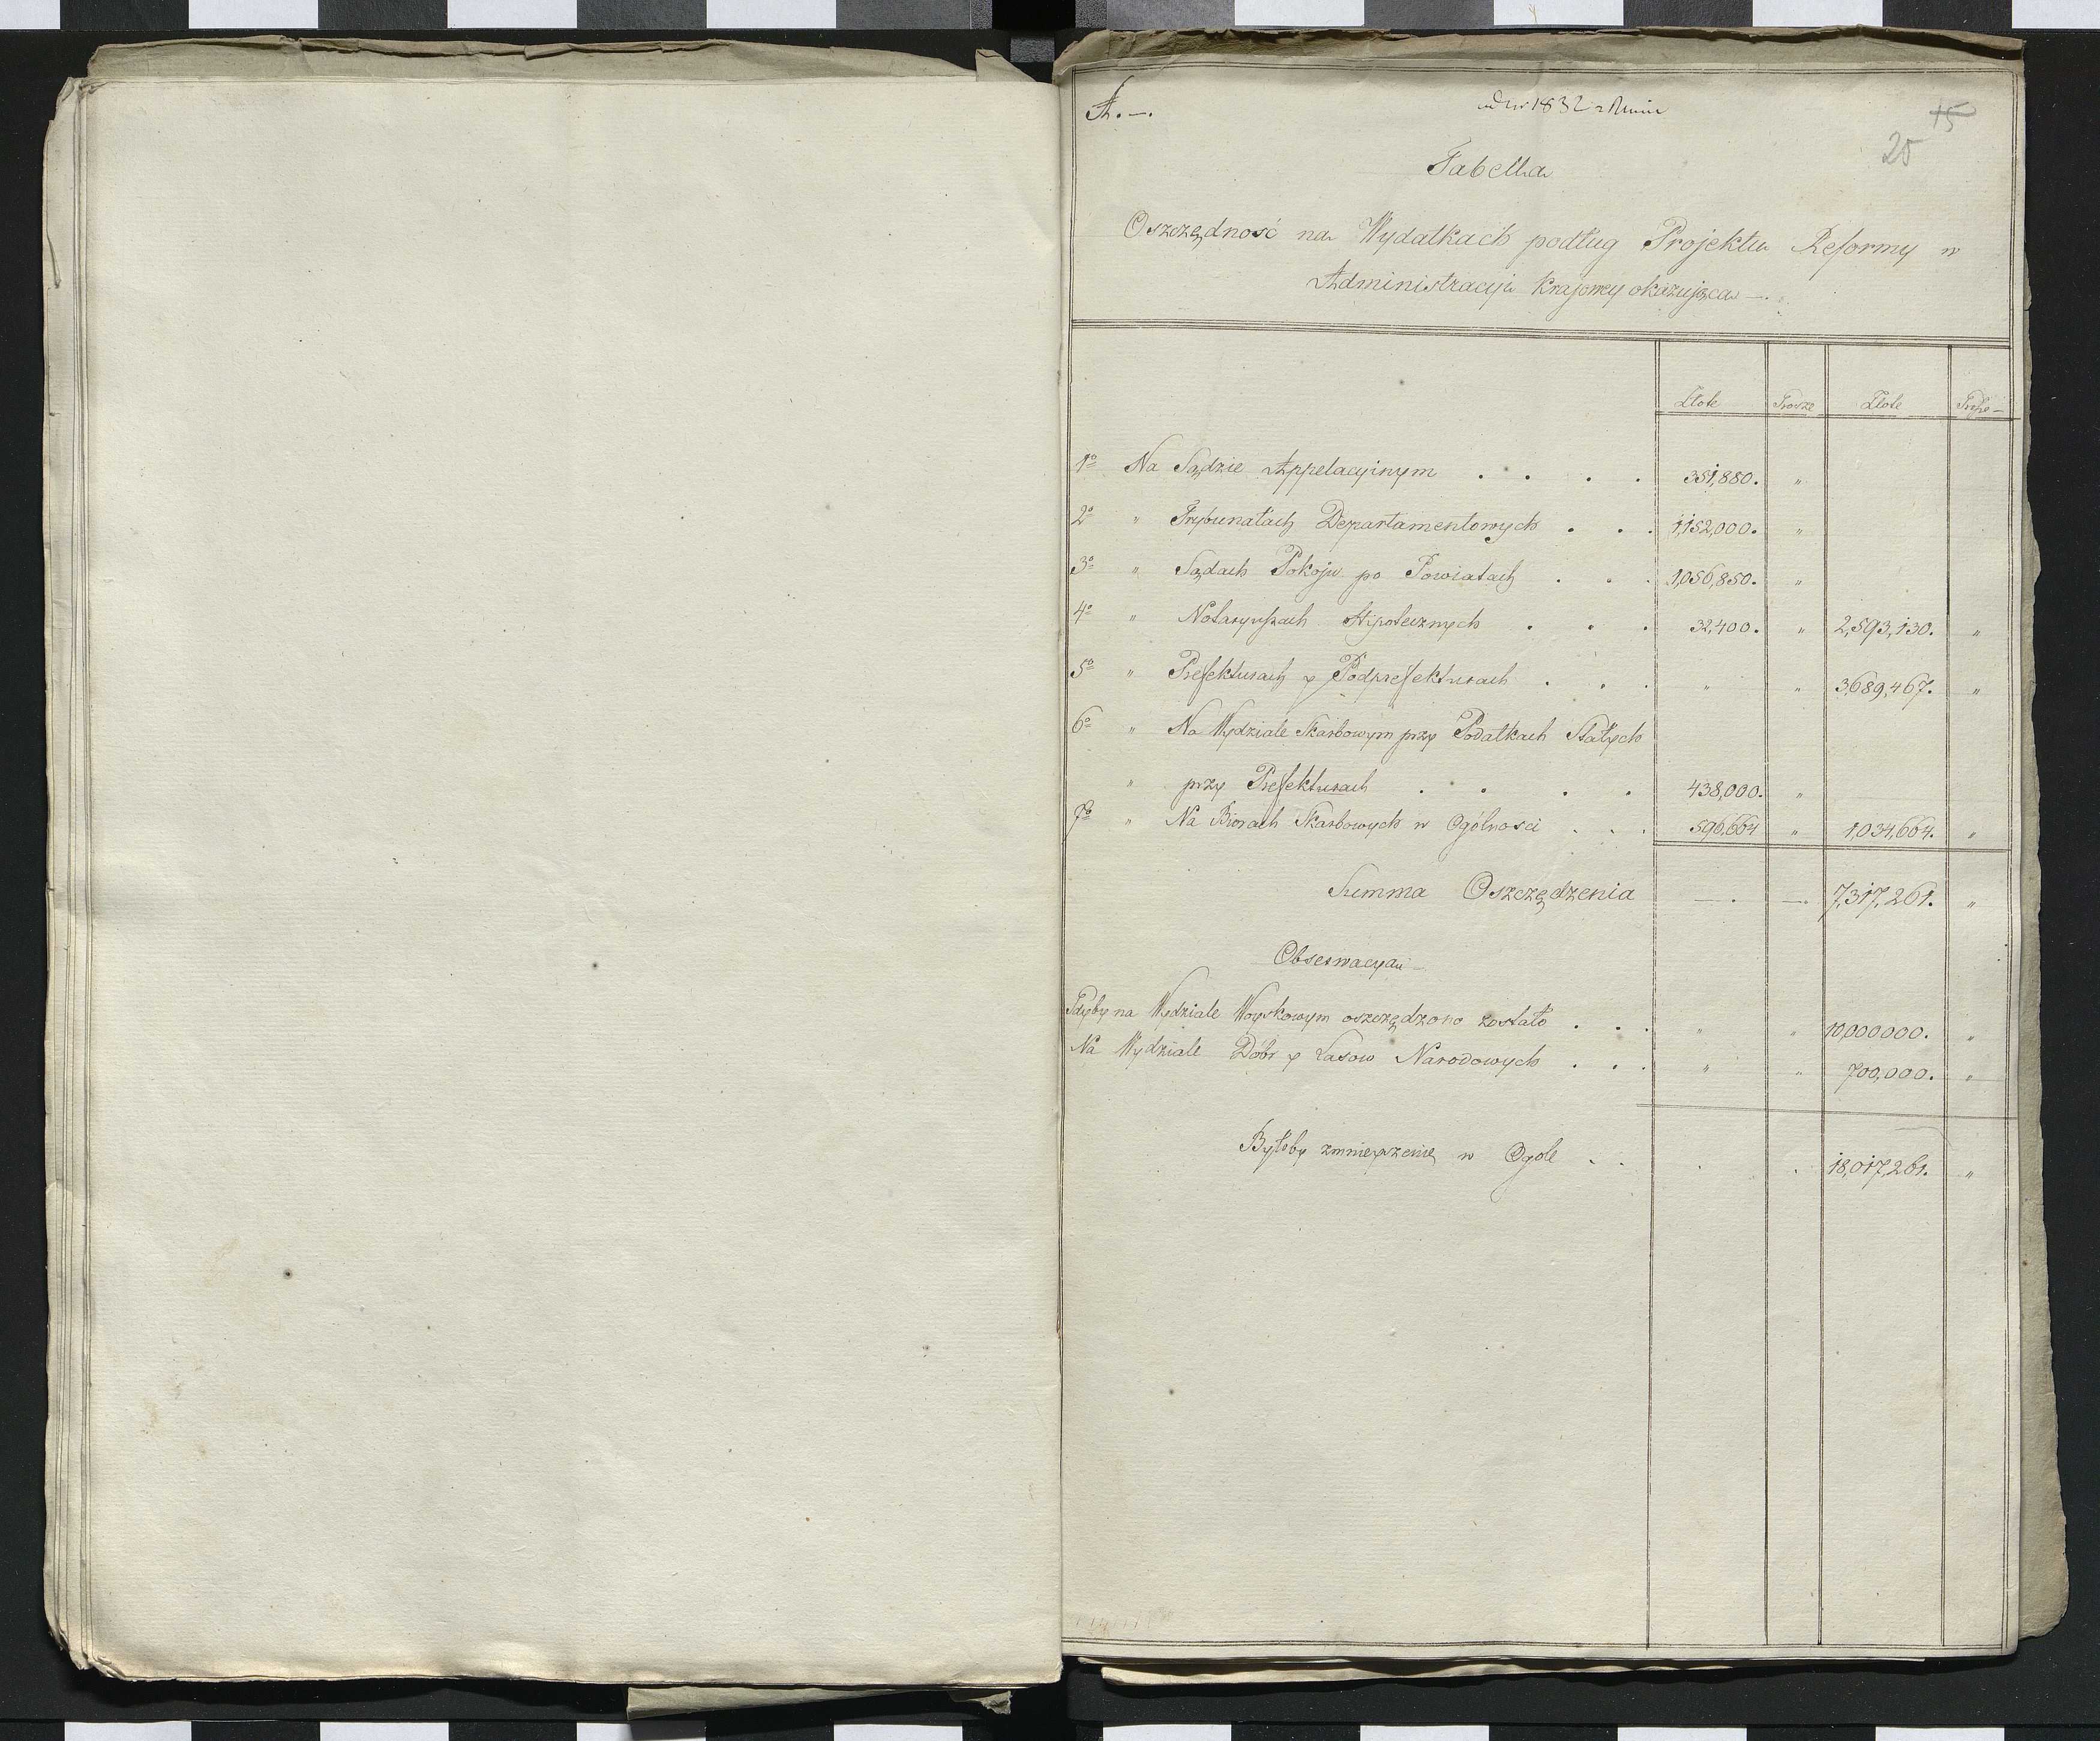 A. —.
1832
15
20
Tabella
Oszczędność na Wydatkach podług Projektu Reformy w
Administracyi Krajowey okazująca —.
Złote Grosze Złote Grosze
1º Na Sądzie Appelacyinym . . . . 351,880. "
2º " Trybunałach Departamentowych . . . 1,152,000. "
3º " Sądach Pokoju po Powiatach . . . 1,056,850. "
4º " Notaryuszach Hipotecznych . . . 32,400. " 2,593,130. "
5º " Prefekturach y Podprefekturach . . . " " 3,689,467. "
6º " Na Wydziale Skarbowym przy Podatkach Stałych
" przy Prefekturach . . . . 438,000. "
7º " Na Biorach Skarbowych w Ogólnosci . . . 596,664 " 1,034,664. "
Summa Oszczędzenia —. —. 7,317,261. "
Obserwacya —
Gdyby na Wydziale Woyskowym oszczędzono zostało . . . " " 10,000000. "
Na Wydziale Dobr y Lasow Narodowych . . . " " 700,000. "
Byłoby zmnieyszenie w Ogole . . . . 18,017,261. "